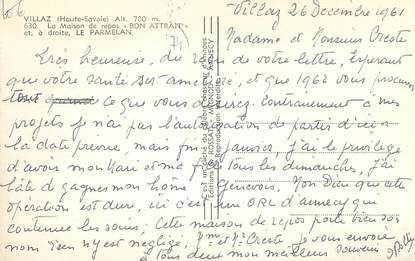 606
VILLAZ (Haute-Savoie) Alt. 700 m.
630. La Maison de repos « BON ATTRAIT »
et, à droite, LE PARMELAN.
74
Villaz 26 Decembre 1961
Madame et Monsieur Creste
Très heureuse, du reçu de votre lettre, Esperant
que votre santé soit ameliorée, et que 1962 vous procure
tout ce que vous desirez. Contrairement à mes
projets je n'ai pas l'autorisation de partir d'ici à
la date prevue, mais fin Janvier, j'ai le privilège
d'avoir mon Mari et ma tous les dimanches, j'ai
hâte de gagner mon home Genevois. Mon Dieu que cette
opération est dure, ici c'est un ORL d'annecy qui
continue les soins, Cette maison de repos porte bien son
nom rien n'y est négligé, Mme et Mr Creste je vous envoie
à tous deux mon meilleur souvenir